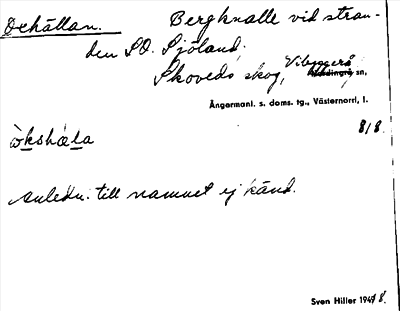 Oxhällan. Bergknalle vid stran-
den SO. Sjöland.
Skoveds skog, Vibyggerå
Nordingrå sn,
Ångermanl. s. doms. tg., Västernorrl. l.
8/8.
òkshæla
Anledn. till namnet ej känd.
Sven Hiller 1948.